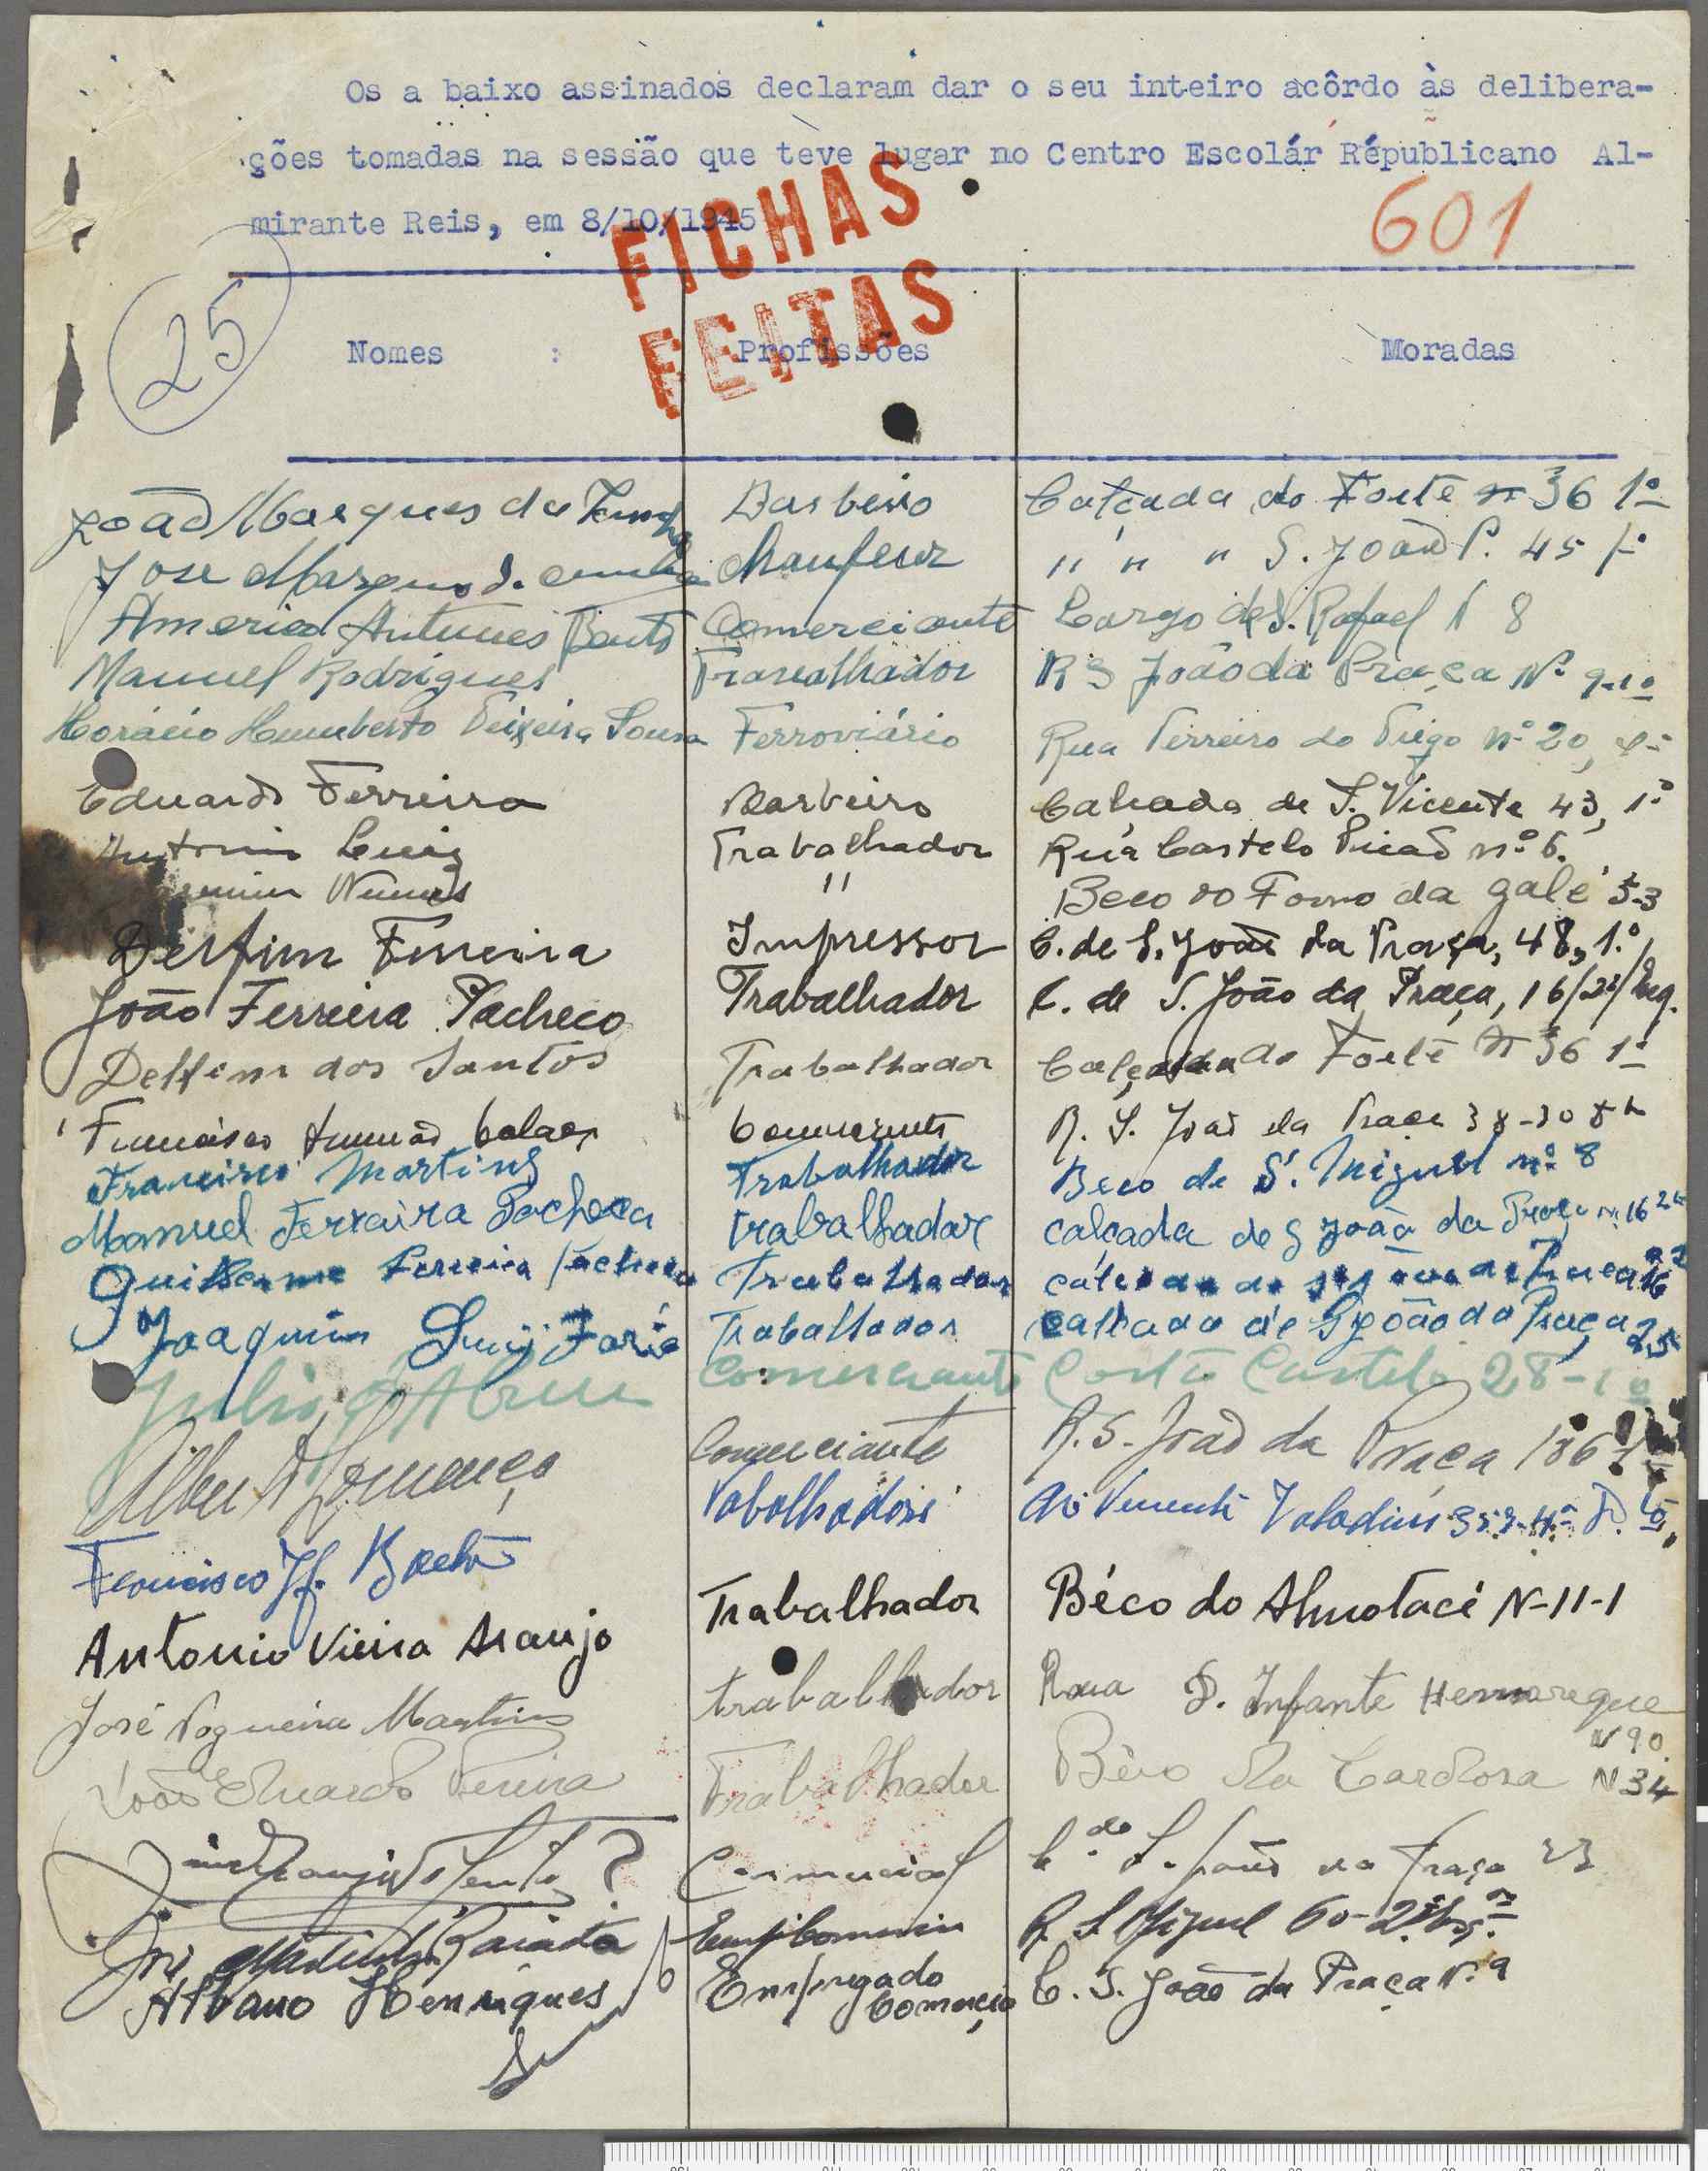 Os a baixo assinados declaram dar o seu inteiro acôrdo às delibera-
ções tomadas na sessão que teve lugar no Centro Escolár Républicano Al-
mirante Reis, em 8/10/1945
601
FICHAS
FEITAS
25
Nomes : Profissões Moradas
João Marques da Barbeiro Calçada do Forte Nº 36 1º
Jose Marques da Chaufeur " " " S. João P. 45 1º
Americo Antunes Bento Comerciante Largo de S. Rafael N 8
Manuel Rodrigues Trabalhador R S João da Praça Nº 9-1º
Horácio Humberto Teixeira Sousa Ferroviário Rua Terreiro do Trigo nº 20,
Eduardo Ferreira Barbeiro Calçada de S. Vicente 43, 1º
Antonio Luiz Trabalhador Rua Castelo Picão nº 6.
Nunes " Beco do Forno da galé 5-3
Delfim Ferreira Impressor C. de S. João da Praça, 48, 1.º
João Ferreira Pacheco Trabalhador C. de S. João da Praça, 16/2º/Esq.
Delfim dos Santos Trabalhador Calçada do Forte Nº 36 1º
R. S. João da Praça 38-30
Francisco Martins Trabalhador Beco de S. Miguel nº 8
Manuel Ferraira Pacheca trabalhador calçada de S João da Praça n. 16
Guilherme Ferreira Pacheco Trabalhador
Joaquim Luiz Faria Trabalhador calçada de S João da Praça 25
Julio d'Abreu Comerciante Costa Castelo 28-1º
Alberto Lourenço Comerciante R. S. João da Praça 106
Francisco Trabolhador Valadim
Antonio Vieira Araujo Trabalhador Béco do Almotacé N-11-1
José Nogueira Martins trabalhador Rua D. Infante Henrreque
N 90.
João Eduardo Pereira Trabalhador Bêco da Cardosa N 34
? Comercial C. de S. João da Praça 23
Emp Comercio R. S Miguel 60-2º
Albano Henriques Empregado
Comercio C. S. João da Praça N. 9